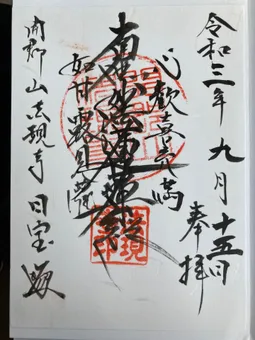 令和三年九月十五日
奉拝
心歓喜充満
南無妙法蓮華経
如甘露見灌
開郡山法現寺日宝